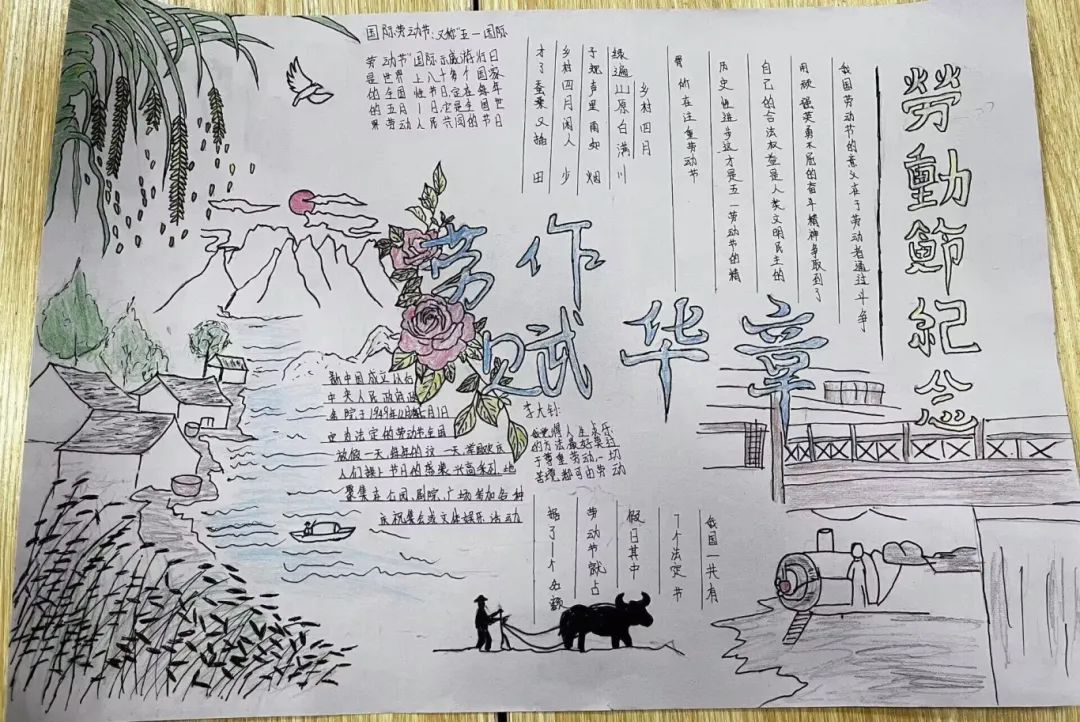 勞動節紀念
劳作
赋华章
国际劳动节,又称"五一国际
劳动节"国际示威游行日
是世界上八十多个国家
的全国性节日,定在每年
的五月一日,它是全世
界劳动人民共同的节日
乡村四月
绿遍山原白满川
子规声里雨如烟
乡村四月闲人少
才了蚕桑又插田
我国劳动节的意义在于劳动者通过斗争
用顽强英勇不屈的奋斗精神争取到了
自己的合法权益是人类文明民主的
历史性进步这才是五一劳动节的精
所在注重劳动节
新中国成立以后
中央人民政府政
务院于1949年12月5月1日
为法定的劳动节全国
放假一天每年的这一天举国欢庆
人们换上节日的盛装兴高采烈地
聚集在公园、剧院、广场参加各种
庆祝集会或文体娱乐活动
李大钊:
我觉得人生求乐
的方法最好莫过
于尊重劳动一切
苦境都可由劳动
我国一共有
个法定节
假日其中
劳动节就占
据了一个名额